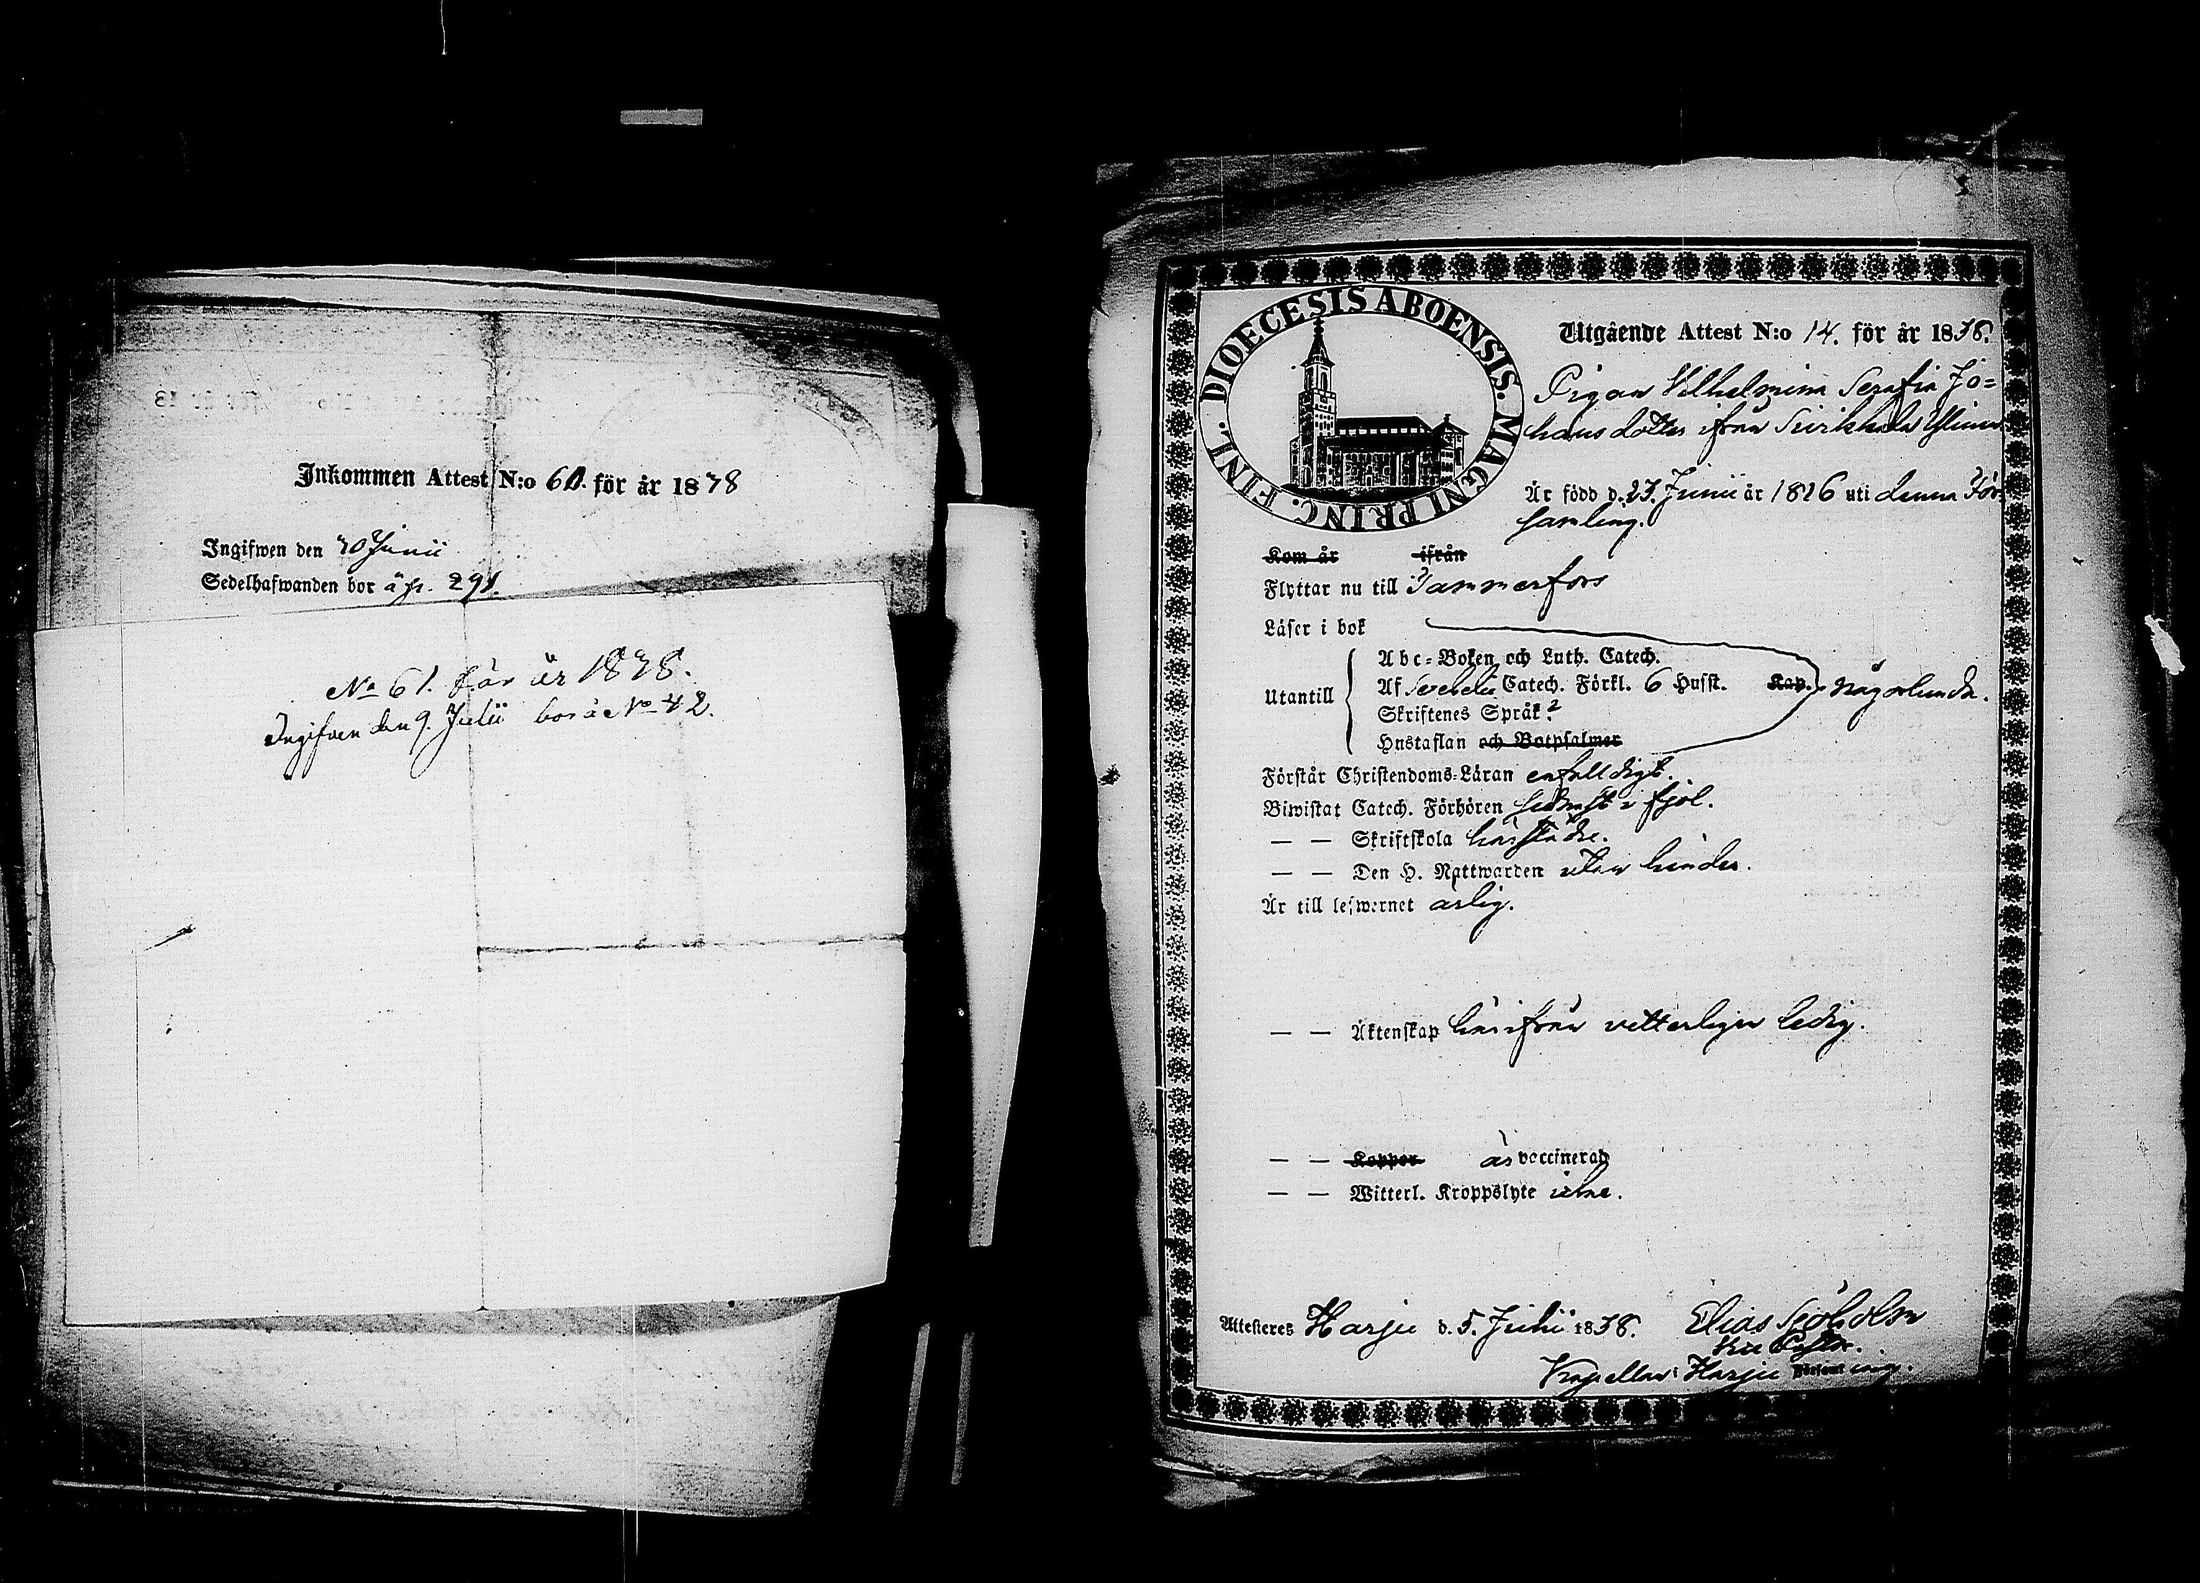 Inkommen Attest N:o 60. för år 1838
Ingifwen den 30 Junii
Sedelhafwanden bor å N. 291.
No 61. för år 1838.
Ingifven den 9. Julii bor å No 42.
DIOECESIS ABOENSIS. MAGNI PRINC. FINL.
Utgående Attest N:o 14. för år 1838.
Pigan Vilhelmina Serafia Jo=
hansdotter ifrån
Är född d. 27. Junii år 1816 uti denna För
samling.
Kom år ifrån
Flyttar nu till Tammerfors
Läser i bok
Abc=Boken och Luth. Catech.
Utantill Af Svebelii Catech. Förkl. 6 Hufst. Kap. någorlunda.
Skriftenes Språk.
Hustaflan och Botpsalmer
Förstår Christendoms=Läran enfalldigt.
Biwistat Catech. Förhören sednast i fjol.
— — Skriftskola härstädes.
— — Den H. Nattwarden utan hinder.
Är till lefwernet ärlig.
— — Äktenskap härifrån vetterligen ledig.
— — Koppor är vaccinerad
— — Witterl. Kroppslyte icke.
Attesteras Harju d. 5. Julii 1838. Elias Sjöholm
Vice Pastor.
Kapellan i Harju Församling.